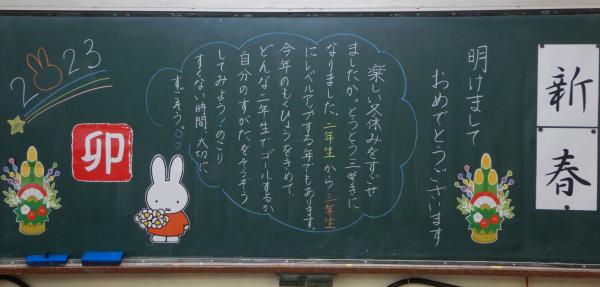 新春
明けまして
おめでとうございます
楽しい冬休みをすごせ
ましたか。とうとう三学きに
なりました。二年生から三年生
にレベルアップする年でもあります。
今年のもくひょうをきめて、
どんな二年生でゴールするか
自分のすがたをそうぞう
してみよう!のこり
すくない時間、大切に
すごそう。
2023
卯